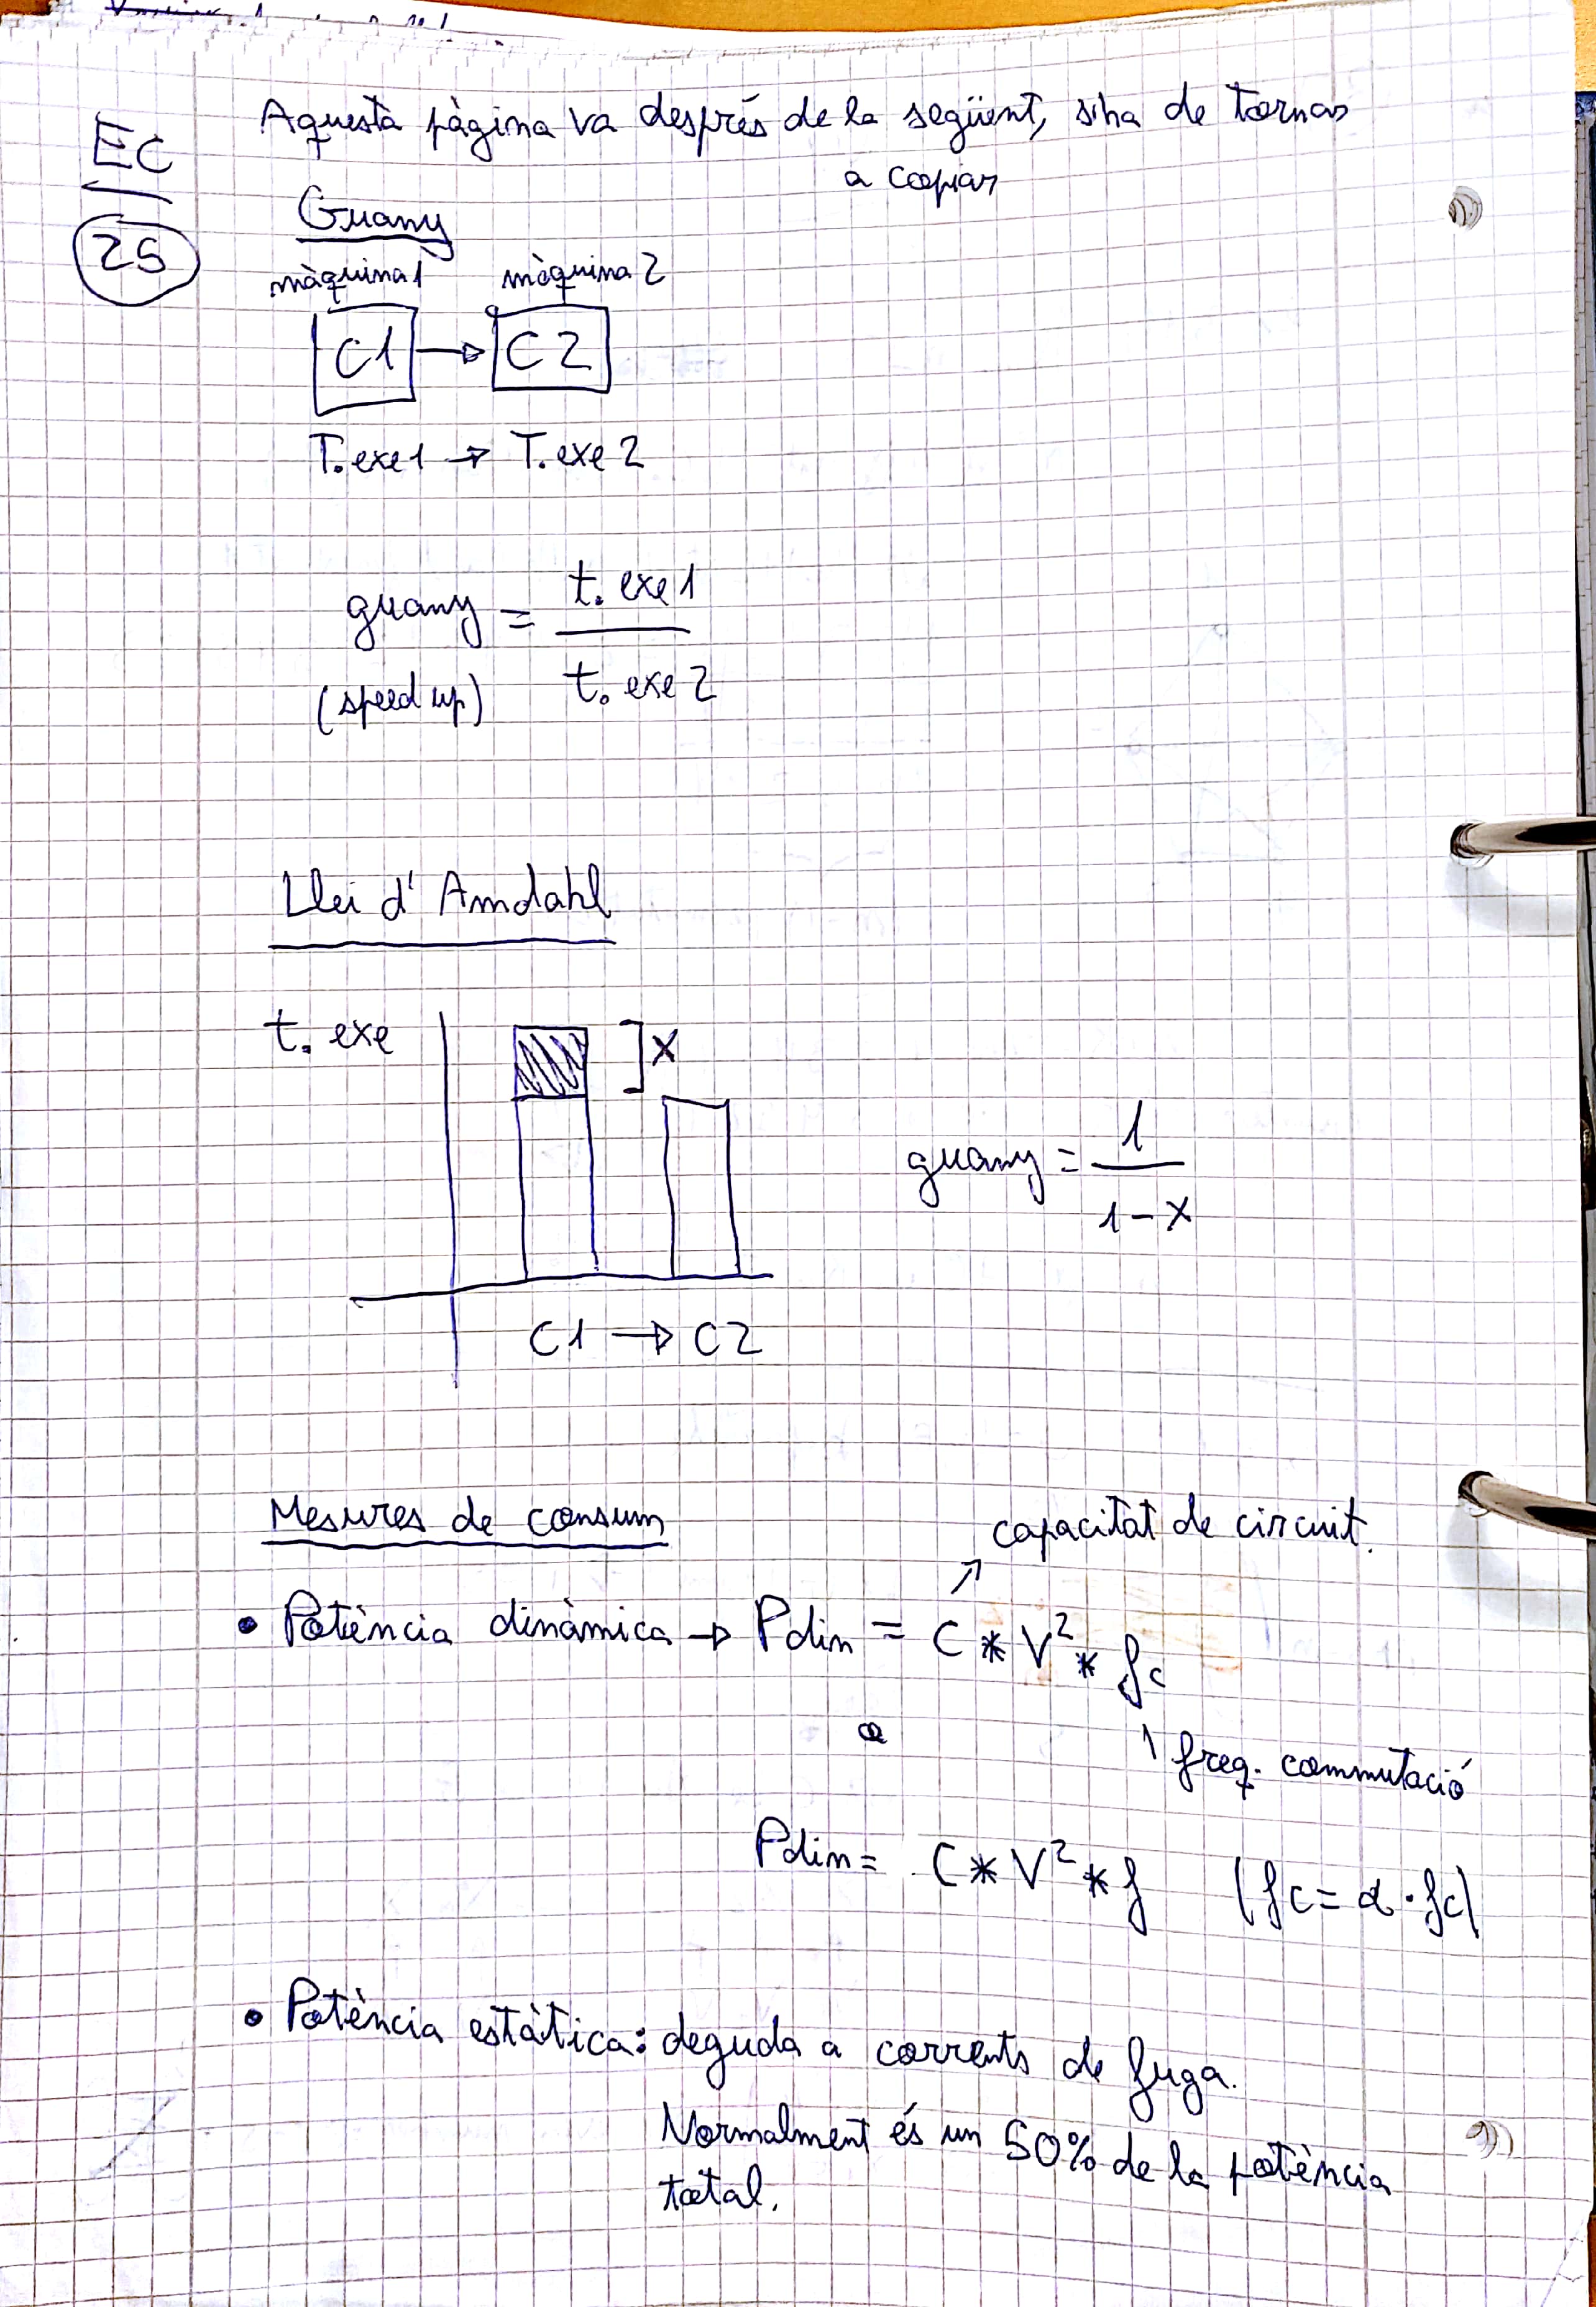 EC
25
Aquesta pàgina va després de la següent, s'ha de tornar
a copiar
Guany
màquina 1 màquina 2
C1 → C2
T.exe1 → T.exe 2
guany = t. exe 1
(speed up) t. exe 2
Llei d'Amdahl
t. exe
X
guany = 1
1 - X
C1 → C2
Mesures de consum
capacitat de circuit.
• Potència dinàmica → Pdin = C * V² * fc
freq. commutació
Pdin = C * V² * f (fc = α · fc)
• Potència estàtica: deguda a corrents de fuga.
Normalment és un 50% de la potència
total.